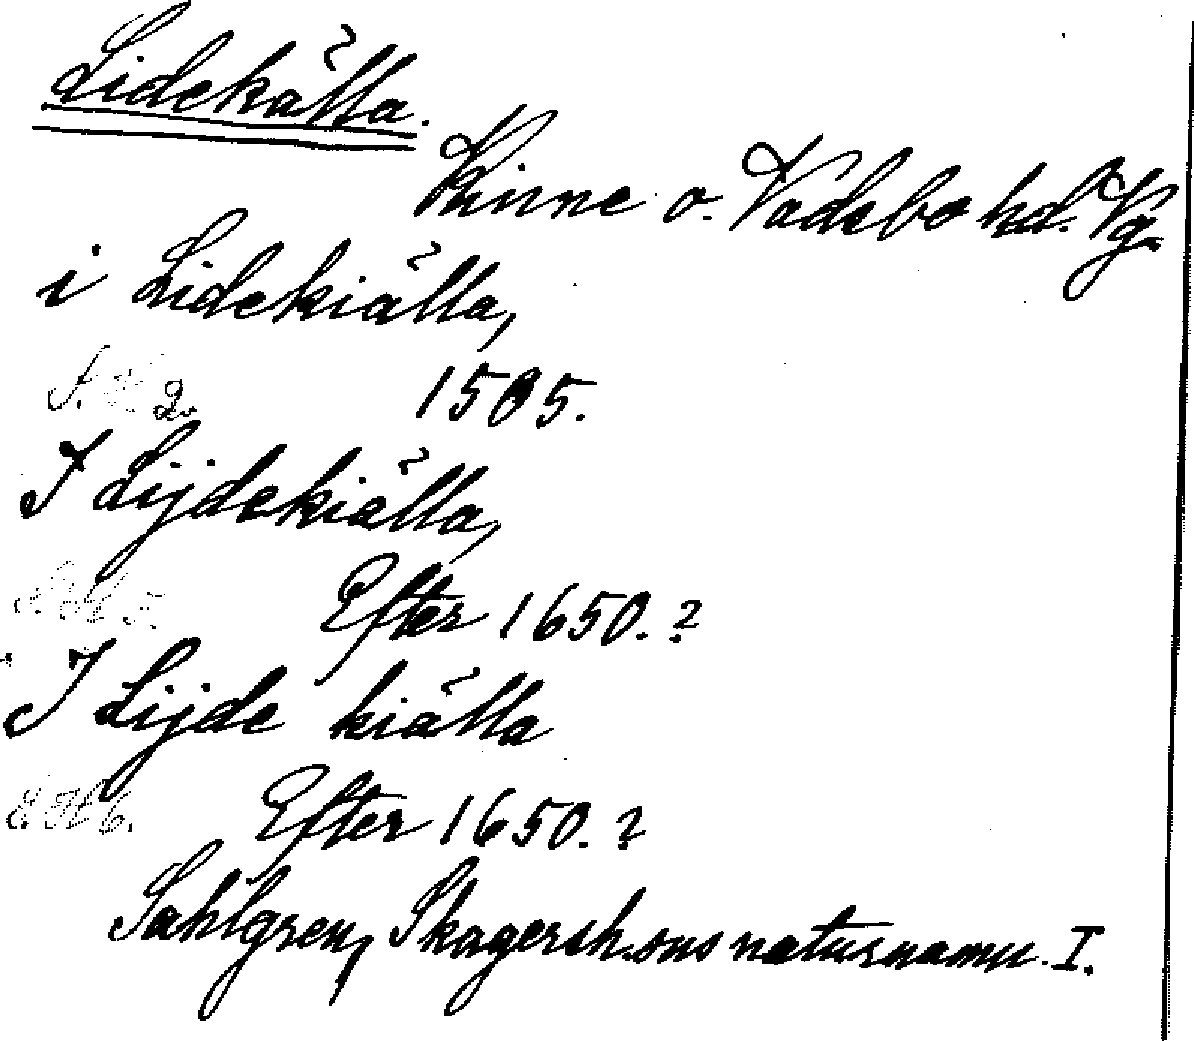 Lidekälla.
Kinne o. Vadsbo hd. Vg.
i Lidekiälla,
1505.
I Lijdekiälla,
Efter 1650.?
I Lijde kiälla
Efter 1650.?
Sahlgren, Skagersh. sns naturnamn. I.